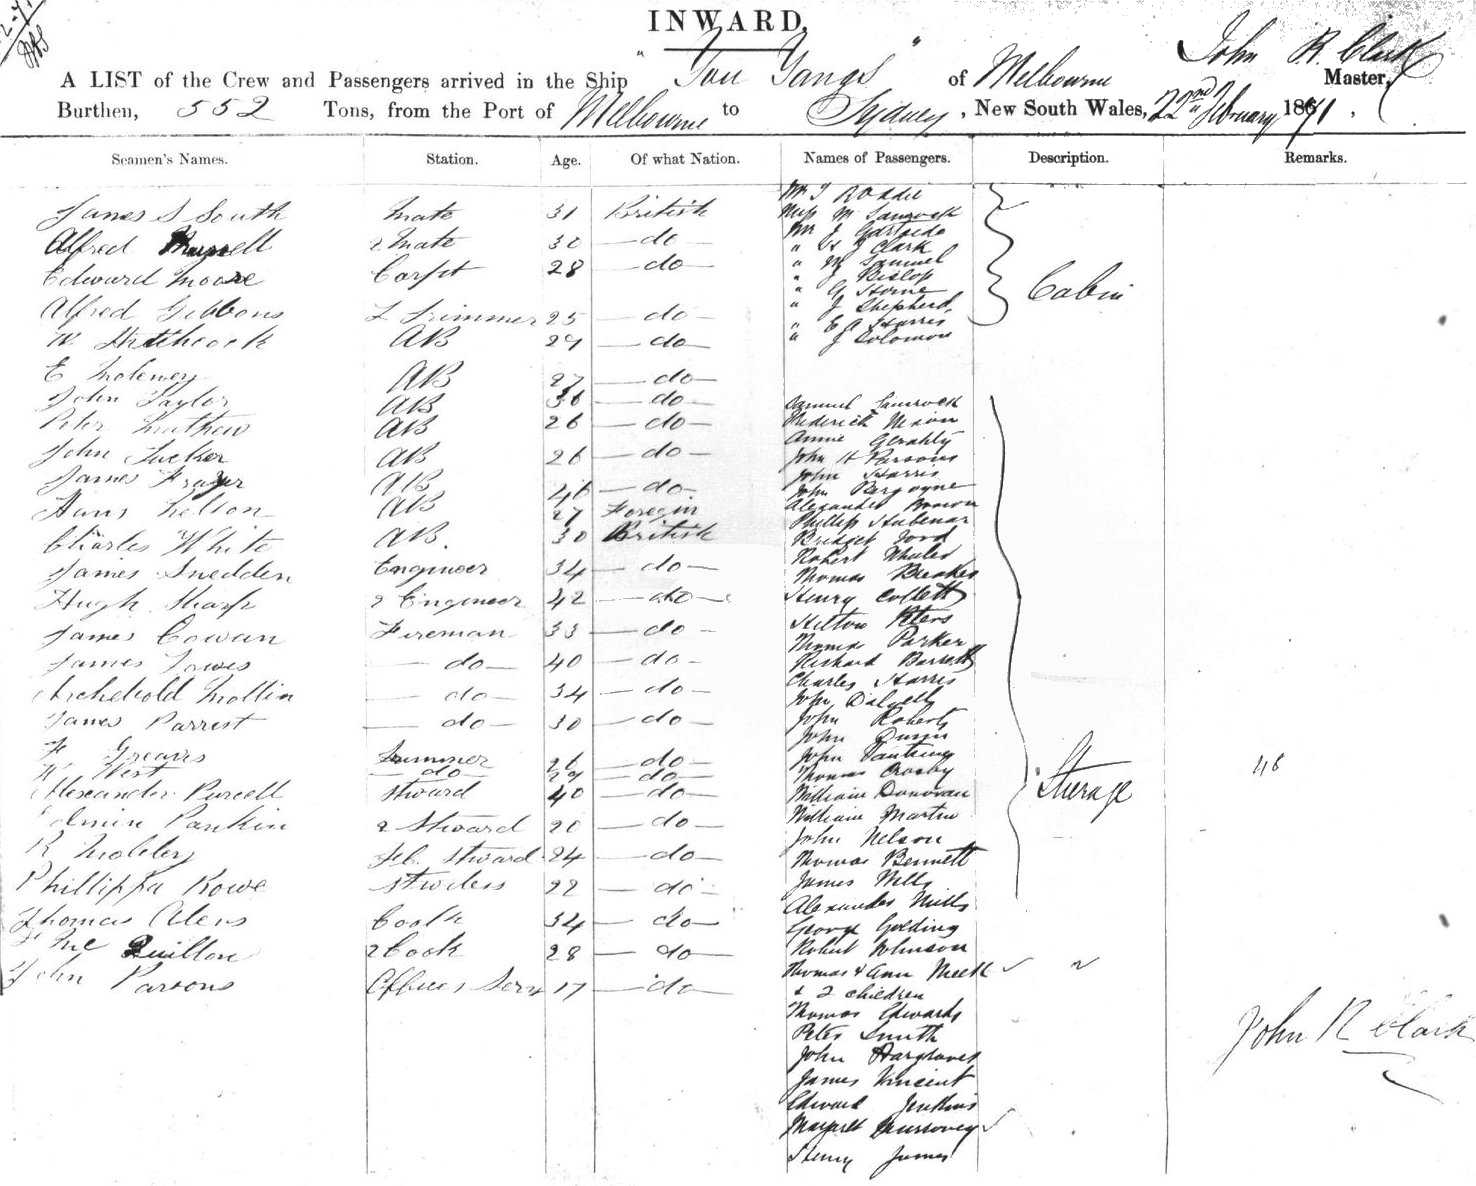 INWARD.
A LIST of the Crew and Passengers arrived in the Ship "You Yangs" of Melbourne John R. Clark Master,
Burthen, 552 Tons, from the Port of Melbourne to Sydney, New South Wales, 22nd February 1871.
Seamen's Names. Station. Age. Of what Nation. Names of Passengers. Description. Remarks.
James S South Mate 31 British
Alfred 2 Mate 30 — do —
Edward Moore Carpt 28 — do —
Alfred Gibbons L Trimmer 25 — do —
W Hitchcock AB 29 — do —
E AB 27 — do —
John Taylor AB 36 — do —
Peter AB 26 — do —
John Tucker AB 26 — do —
James Frazer AB 46 — do —
Hans AB 27 Foregin
Charles White AB. 30 British
James Snedden Engineer 34 — do —
Hugh Sharp 2 Engineer 42 — do —
James Cowan Fireman 33 — do —
James — do — 40 — do —
Archebold — do — 34 — do —
James Parrest — do — 30 — do —
26 — do —
W West — do — 29 — do —
Alexander Purcell Steward 40 — do —
2 Steward 20 — do —
R Steward 24 — do —
Phillippa Rowe 22 — do —
Thomas Cook 34 — do —
2 Cook 28 — do —
John Parsons 17 — do —
Mr T Roddie
Miss M
Mr J Gartside
" H J Clark
" M Samuel
" J Bislop
" G Horne
" J Shepherd
" E A Harris
" J Solomon
Cabin
Samuel
Frederick Nixon
Annie Geraghty
John H Parsons
John Harris
John Burgoyne
Alexander Brown
Phillip
Bridget Ford
Robert
Thomas
Henry Collett
Hilton Peters
Thomas Parker
Richard Barrett
Charles Harris
John Dalzell
John Roberts
John
John
Thomas Crosby
William Donovan
William Martin
John Nelson
Thomas Bennett
James Wells
Alexander Mills
George Golding
Robert Johnson
Thomas & Ann Meek
& 2 children
Thomas Edwards
Peter Smith
John Hargraves
James Vincent
Edward Jenkins
Margaret
Henry James
Sterage
48
John R Clark